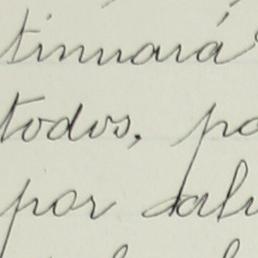 tinuará
todos, po
por salu